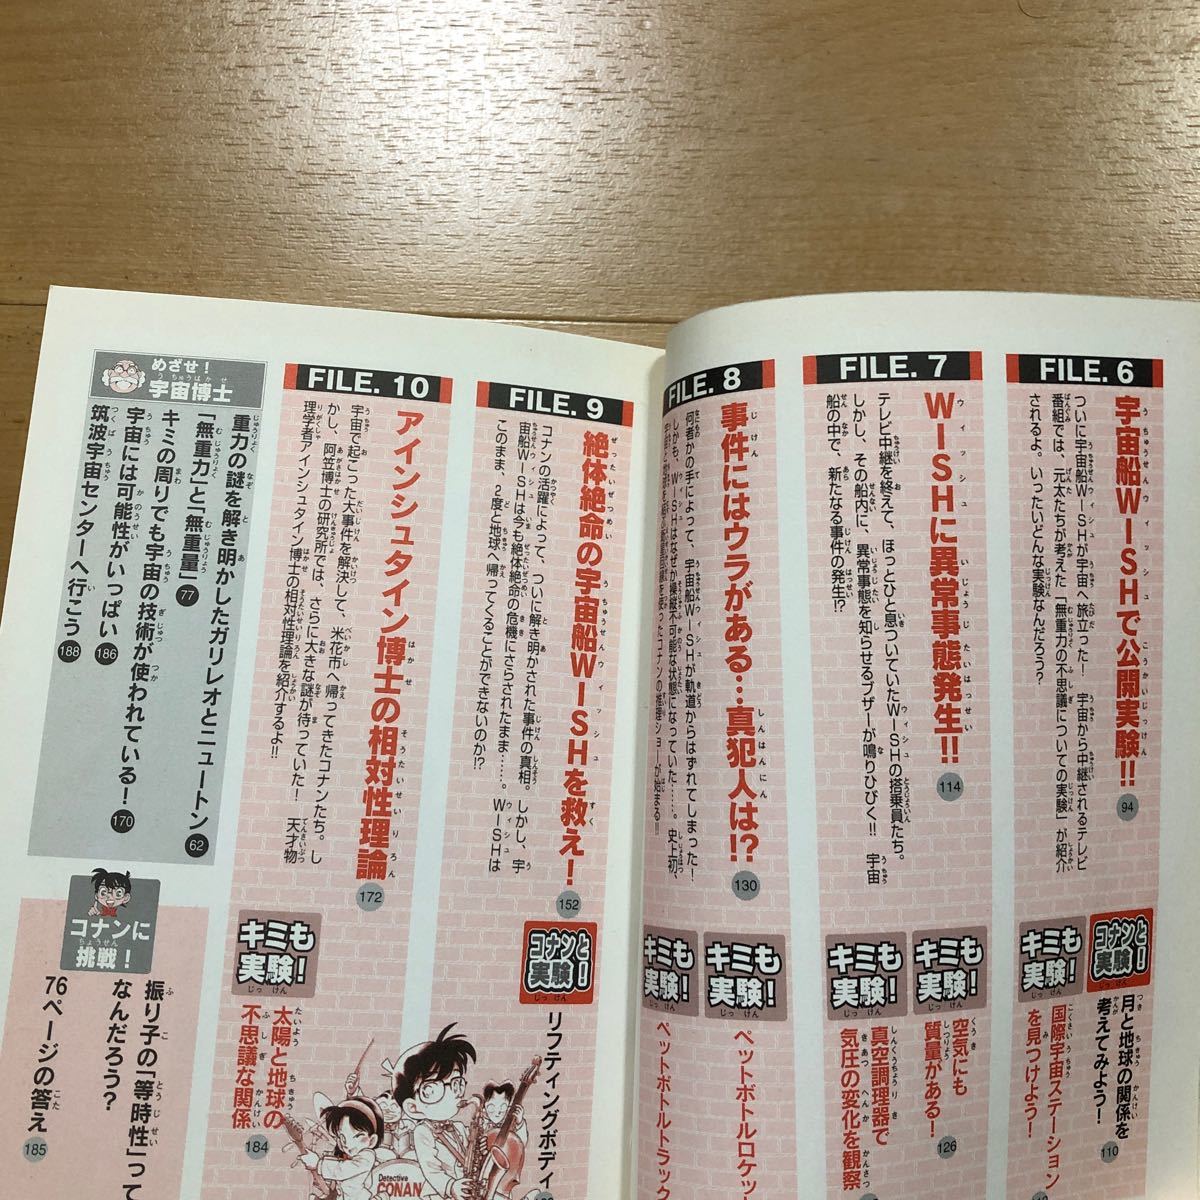 FILE. 6
宇宙船WISHで公開実験!!
94
ついに宇宙船WISHが宇宙へ旅立った! 宇宙から中継されるテレビ
番組では、元太たちが考えた「無重力の不思議についての実験」が紹介
されるよ。いったいどんな実験なんだろう?
コナンと実験!
月と地球の関係を
考えてみよう!
110
キミも実験!
国際宇宙ステーション
を見つけよう!
FILE. 7
WISHに異常事態発生!!
114
テレビ中継を終えて、ほっとひと息ついていたWISHの搭乗員たち。
しかし、その船内に、異常事態を知らせるブザーが鳴りひびく!! 宇宙
船の中で、新たなる事件の発生!?
キミも実験!
空気にも
質量がある!
126
キミも実験!
真空調理器で
気圧の変化を観察
FILE. 8
事件にはウラがある…真犯人は!?
130
何者かの手によって、宇宙船WISHが軌道からはずれてしまった!
しかも、WISHはなぜか操縦不可能な状態になっていた……。史上初、
を使ったコナンの推理ショーが始まる!!
キミも実験!
ペットボトルロケッ
キミも実験!
ペットボトルトラック
FILE. 9
絶体絶命の宇宙船WISHを救え!
152
コナンの活躍によって、ついに解き明かされた事件の真相。しかし、宇
宙船WISHは今も絶体絶命の危機にさらされたまま……。WISHは
このまま、2度と地球へ帰ってくることができないのか!?
コナンと実験!
リフティングボディ
FILE. 10
アインシュタイン博士の相対性理論
172
宇宙で起こった大事件を解決して、米花市へ帰ってきたコナンたち。し
かし、阿笠博士の研究所では、さらに大きな謎が待っていた! 天才物
理学者アインシュタイン博士の相対性理論を紹介するよ!!
キミも実験!
太陽と地球の
不思議な関係
184
Detective
CONAN
めざせ!
宇宙博士
重力の謎を解き明かしたガリレオとニュートン
62
「無重力」と「無重量」
77
キミの周りでも宇宙の技術が使われている!
170
宇宙には可能性がいっぱい
186
筑波宇宙センターへ行こう
188
コナンに
挑戦!
振り子の「等時性」って
なんだろう?
76ページの答え
185